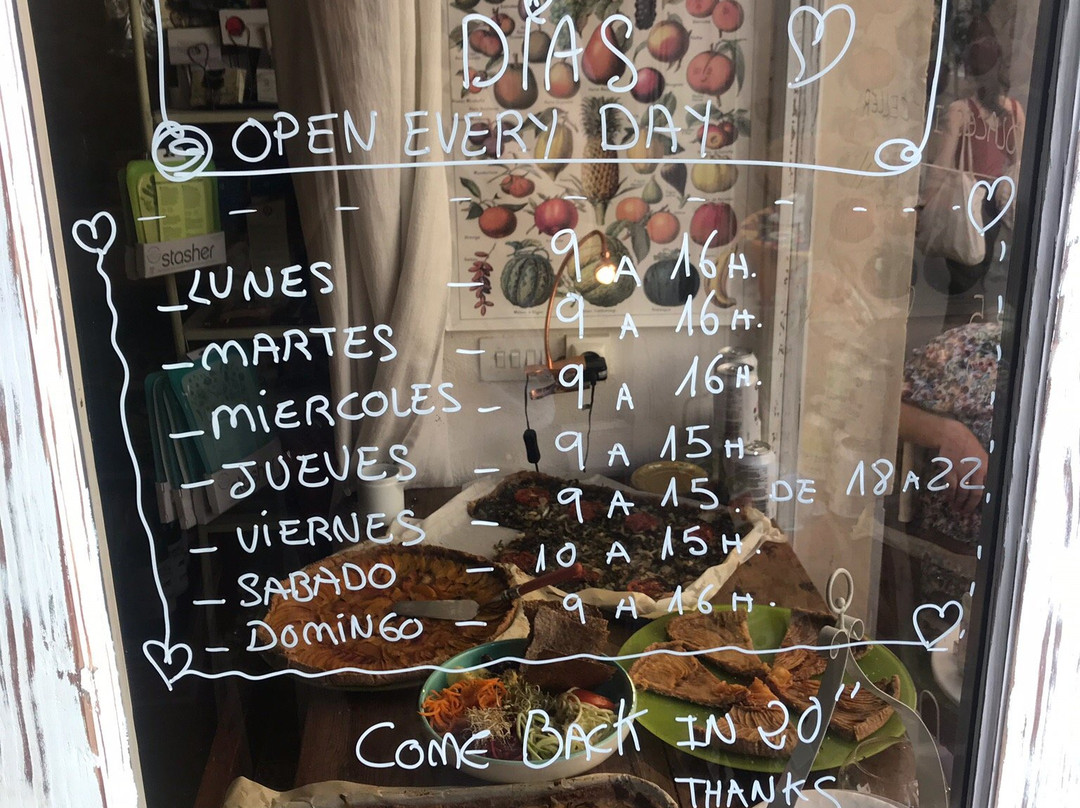 DÍAS
OPEN EVERY DAY
stasher
- LUNES - 9 A 16 H.
- MARTES - 9 A 16 H.
- MIERCOLES - 9 A 16 H.
- JUEVES - 9 A 15 H
- VIERNES - 9 A 15. DE 18 A 22.
- SABADO - 10 A 15 H.
- DOMINGO - 9 A 16 H.
COME BACK IN 20"
THANKS